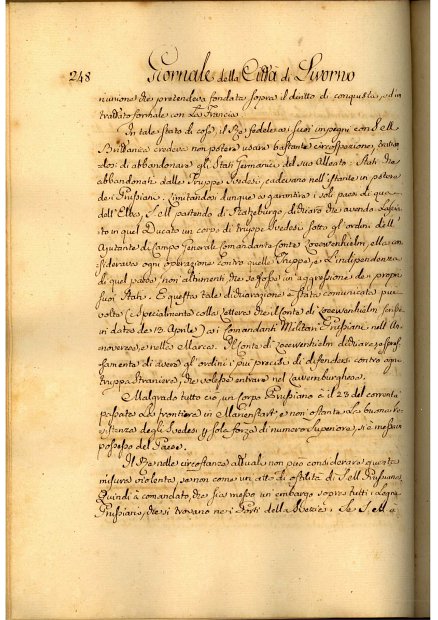 248 Giornale della Città di Livorno
riunione che pretendeva fondata sopra il diritto di conquista, ed in
trattato formale con la Francia.
In tale stato di cose il Re fedele a i suoi impegni con S. M.
Britannica credeva non potere usare bastante circospezione,
dosi di abbandonare gli Stati Germanici del suo Alleato: Stati che
abbandonati dalle Truppe Svedesi, cadevano nell'istante in potere
dei Prussiani. Limitandosi dunque a garantire i soli paesi di qua
dell'Elba, S. M. partendo di Ratzeburgo, dichiarò che avendo lascia
to in quel Ducato un corpo di truppe Svedesi sotto gl'ordini dell'
Ajutante di Campo General Comandante Conte Loewenhielm, ella con
siderava ogni operazione contro quelle Truppe, e l'indipendenza
di quel paese non altrimenti che se fosse un'aggressione de' i proprj
suoi Stati. E questa tale dichiarazione è stata comunicata più
volte (e specialmente colla lettera che il Conte di Loewenhielm scrisse
in data de' 13. Aprile) a i Comandanti Militari Prussiani nell'An
noverese, e nella Marca. Il Conte di Loewenhielm dichiarò espres
samente di avere gl'ordini i più precisi di difendersi contro ogni
truppa straniera, che volesse entrare nel Lawemburghese.
Malgrado tutto ciò, un corpo Prussiano è il 23 del corrente
passato le frontiere in e non ostante la buona re
sistenza degli Svedesi p sola forza di numero superiore, si è messo in
possesso del Paese.
Il Re nelle circostanze attuali non può considerare questa
misura violenta, se non come un atto di ostilità di S. M. Prussiana.
Quindi à comandato, che sia messo un embargo sopra tutti i Legni
Prussiani, che si trovano ne i Porti della Svezia. Se S. M.